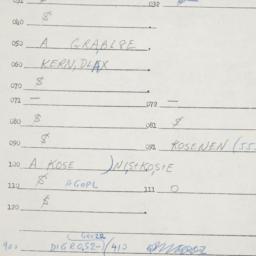 032
040 $
050 A GRAALPE
060 KERN, DLAX
070 $
071 — 072 —
080 $ 081 $
090 $ 091 KOSENEN (55
100 A KOSE )NISKOSE
110 $ AGOPL 111 0
120 $
GEIZE
900 DIGROSZ-)(410